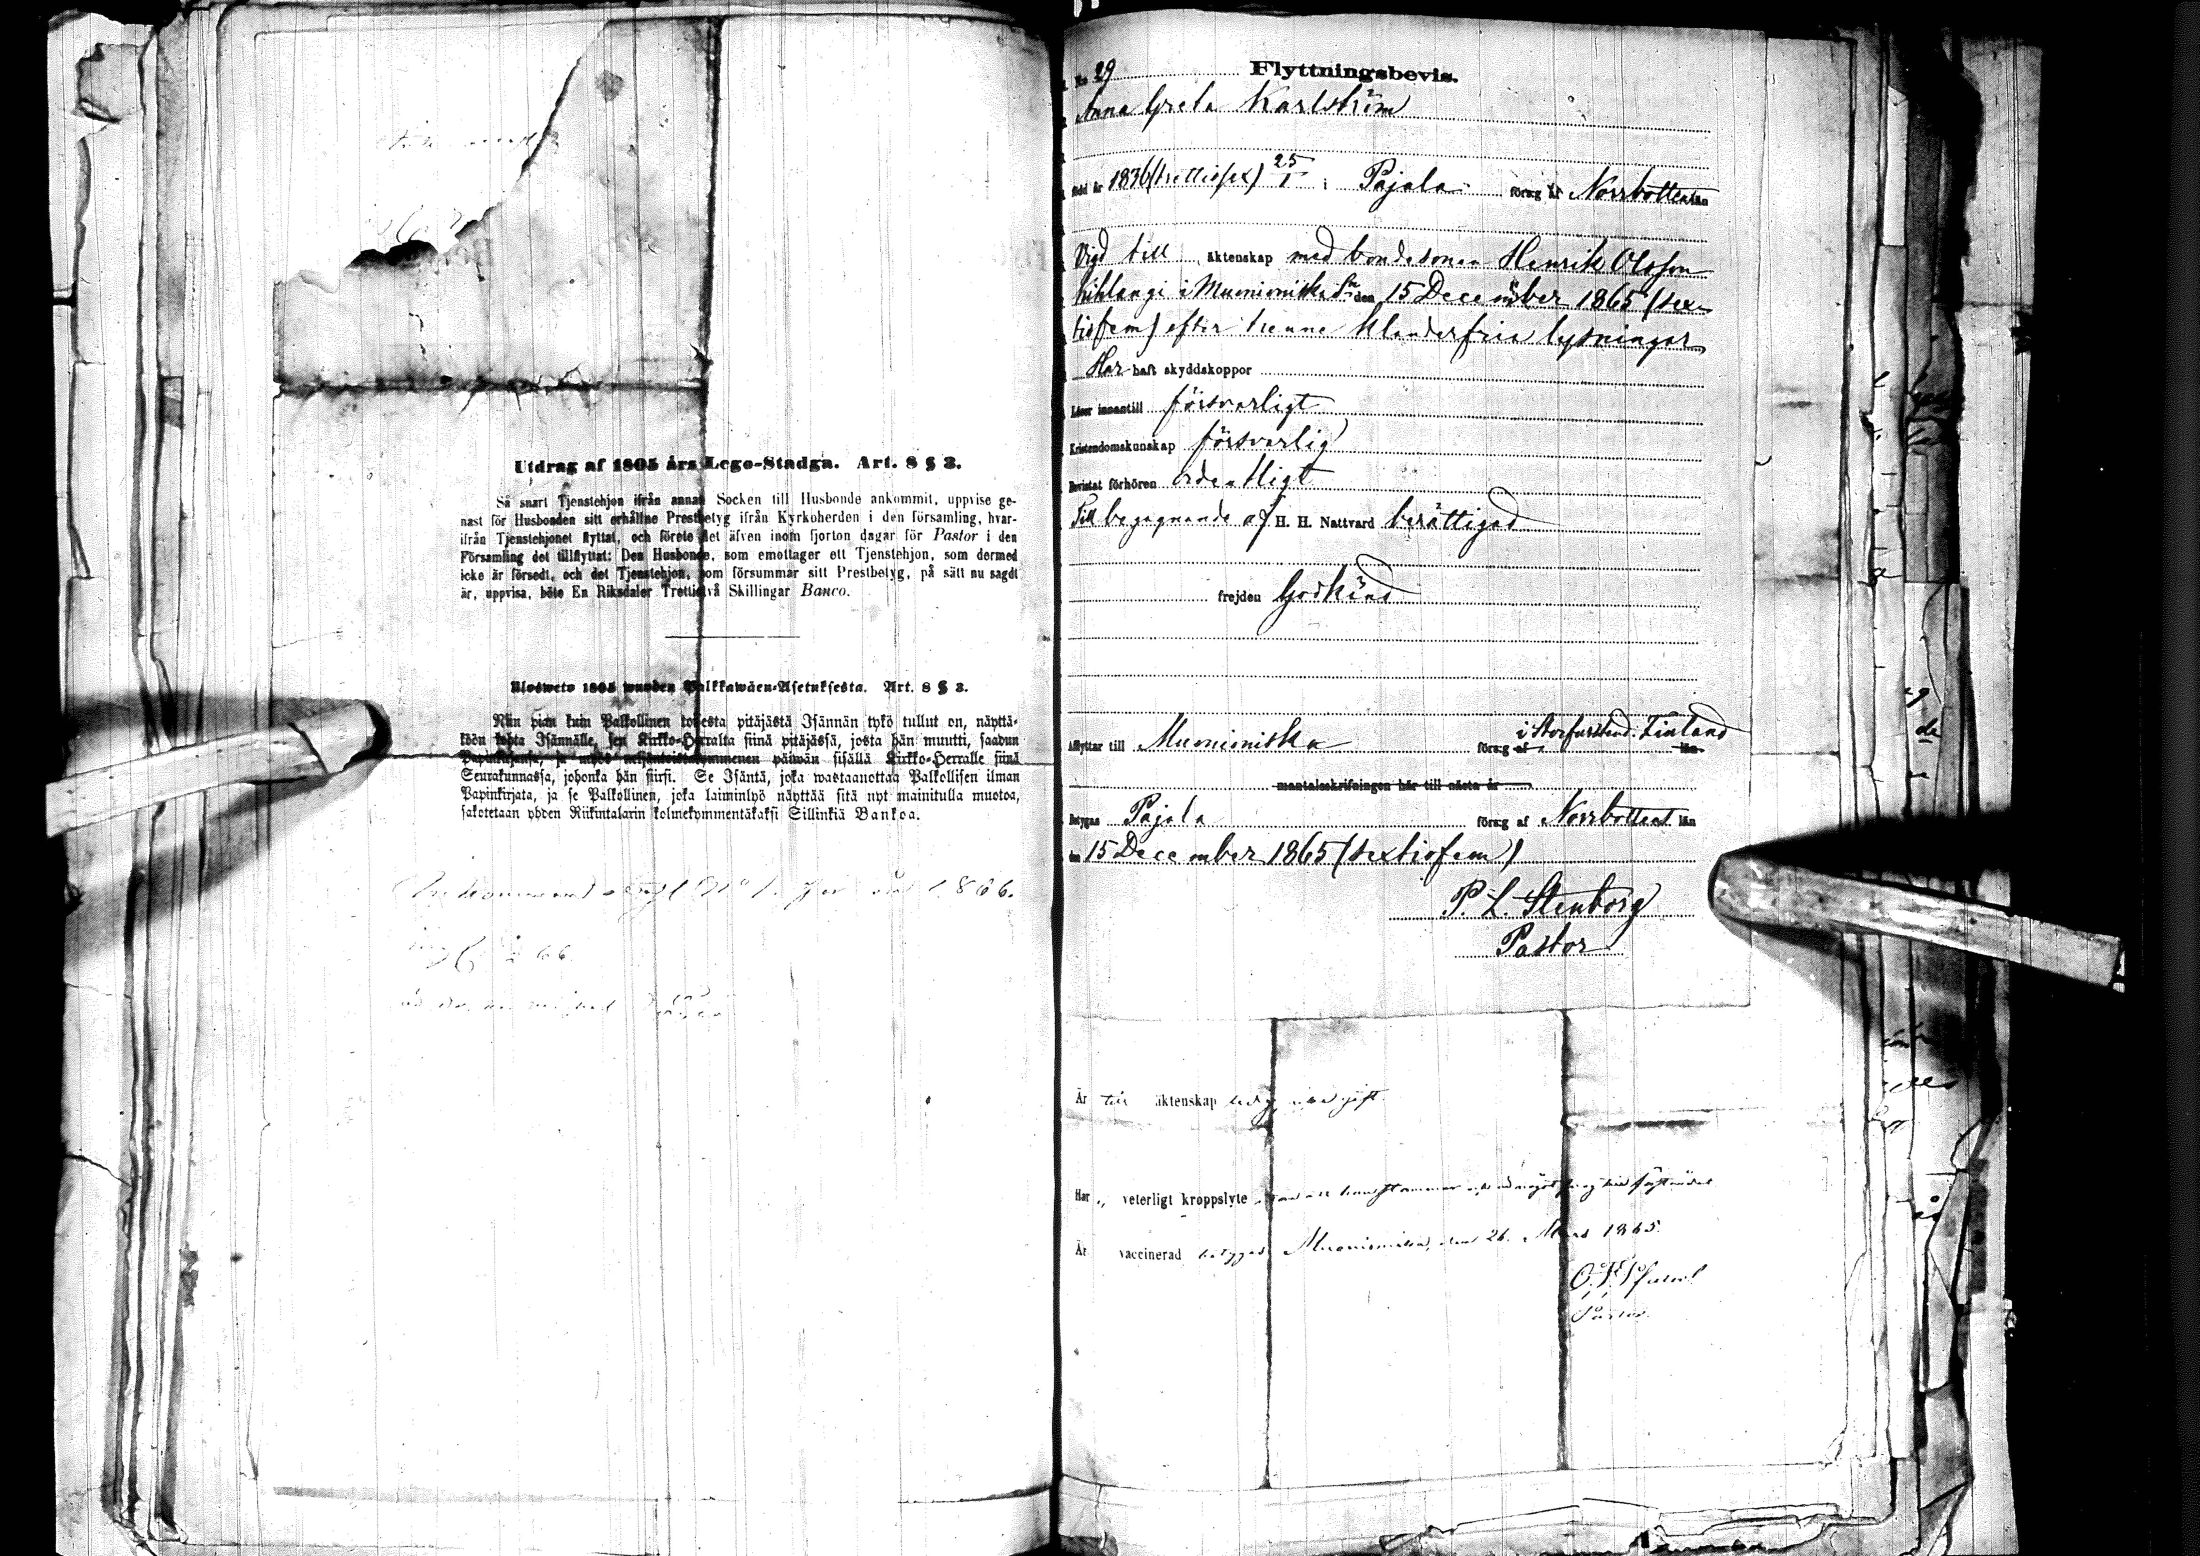 Utdrag af 1805 års Lego-Stadga. Art. 8 § 3.
Så snart Tjenstehjon ifrån annan Socken till Husbonde ankommit, uppvise ge-
nast för Husbonden sitt erhållne Prestbetyg ifrån Kyrkoherden i den församling, hvar-
ifrån Tjenstehjonet flyttat, och förete det äfven inom fjorton dagar för Pastor i den
Församling det tillflyttat: Den Husbonde, som emottager ett Tjenstehjon, som dermed
icke är försedt, och det Tjenstehjon, som försummar sitt Prestbetyg, på sätt nu sagdt
är, uppvisa, böte En Riksdaler Trettiotvå Skillingar Banco.
Ulosweto 1805 wuoden Palkkawäen-Asetuksesta. Art. 8 § 3.
Niin pian kuin Palkollinen toisesta pitäjästä Isännän tykö tullut on, näyttä-
köön kohta Isännälle, sen Kirkko-Herralta siinä pitäjässä, josta hän muutti, saadun
Papinkirjansa, ja myös neljäntoistakymmenen päiwän sisällä Kirkko-Herralle siinä
Seurakunnassa, johonka hän siirsi. Se Isäntä, joka wastaanottaa Palkollisen ilman
Papinkirjata, ja se Palkollinen, joka laiminlyö näyttää sitä nyt mainitulla muotoa,
sakotetaan yhden Riikintalarin kolmekymmentäkaksi Sillinkiä Bankoa.
1866.
66
No 29 Flyttningsbevis.
Anna Greta Karlström
född år 1836 (trettiosex) 25/1 i Pajala förs:g af Norrbottens län
Vigd till äktenskap med bondesonen Henrik Olsson
Kihlangi i Muonioniska Sn den 15 December 1865 (sex-
tiofem) efter trenne klanderfria lysningar
Har haft skyddskoppor
Läser innantill försvarligt
Kristendomskunskap försvarlig
Bevistat förhören ordentligt
Till begagnande af H. H. Nattvard berättigad
frejden Godkänd
Afflyttar till Muonioniska förs:g af i Storfurstend. Finland län
mantalsskrifningen här till nästa år
Betygas Pajala förs:g af Norrbottens län
den 15 December 1865 (sextiofem)
P. L. Stenborg
Pastor
Är till äktenskap ledig
Har veterligt kroppslyte
Är vaccinerad betygas Muonioniska, den 26. Mars 1865.
Pastor.